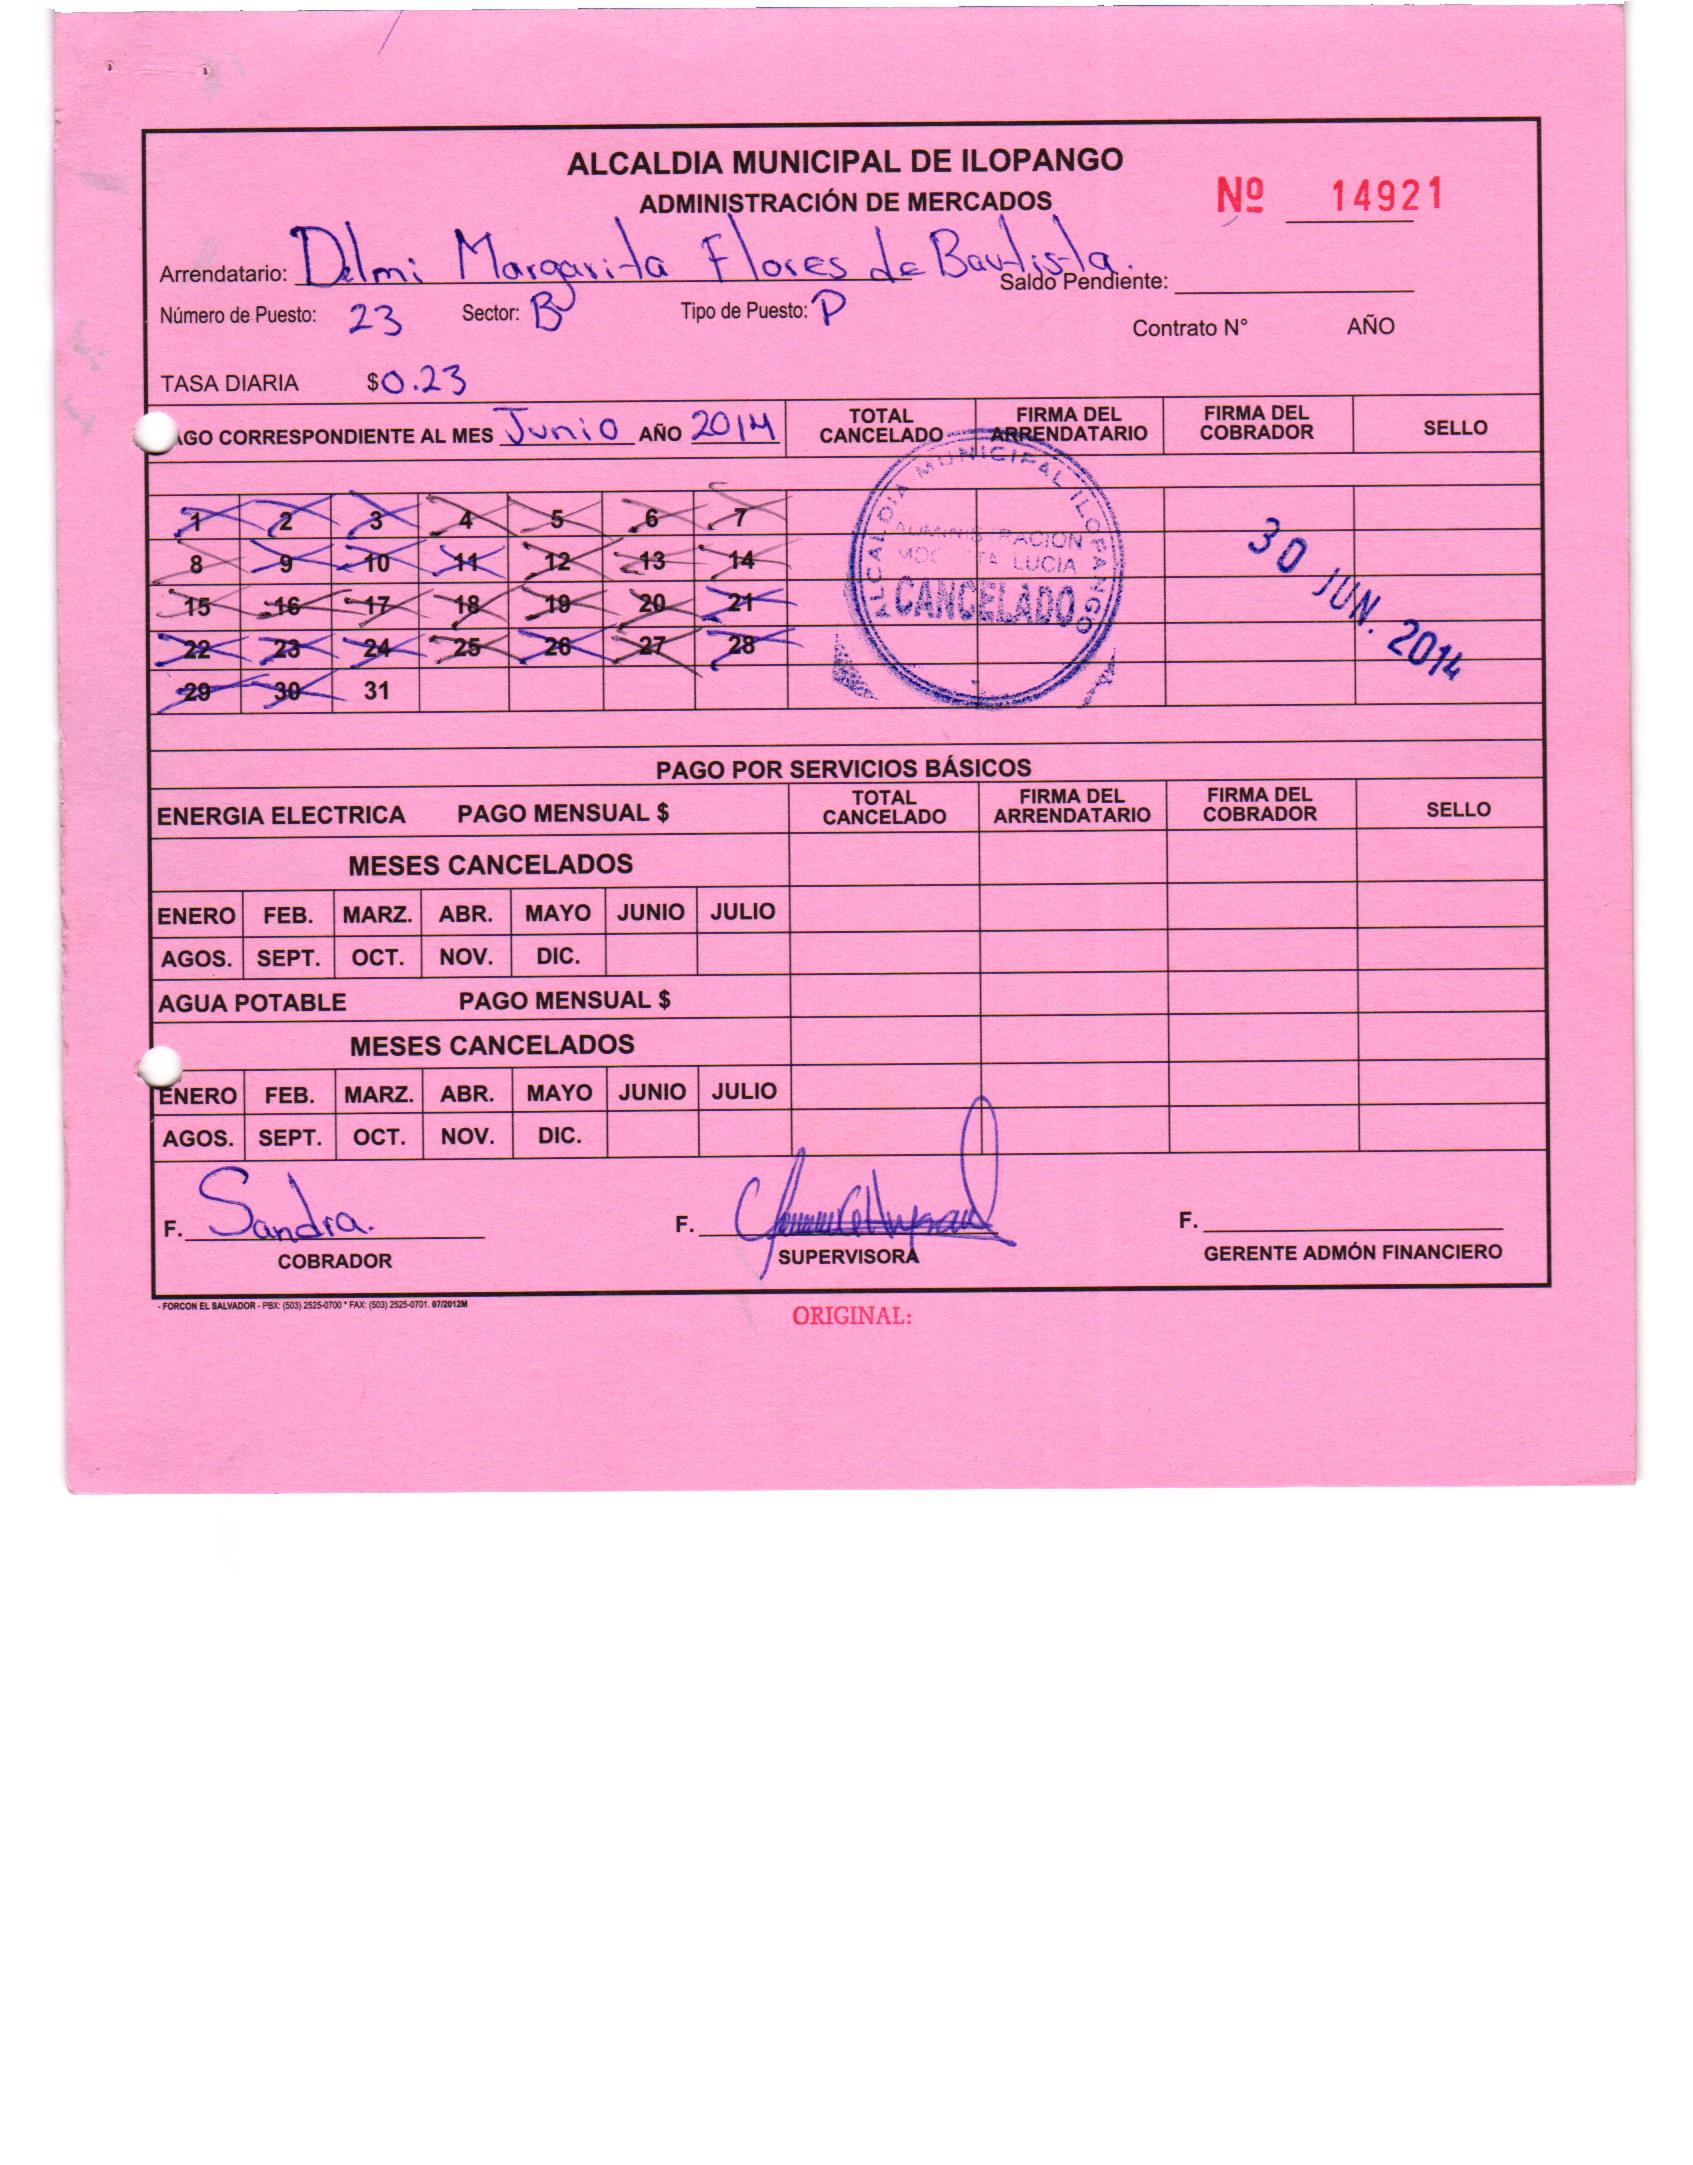 ALCALDIA MUNICIPAL DE ILOPANGO
ADMINISTRACIÓN DE MERCADOS
Nº 14921
Arrendatario: Delmi Margarita Flores de Bautista.
Saldo Pendiente:
Número de Puesto: 23 Sector: B Tipo de Puesto: P
Contrato N° AÑO
TASA DIARIA $0.23
AGO CORRESPONDIENTE AL MES Junio AÑO 2014
TOTAL CANCELADO FIRMA DEL ARRENDATARIO FIRMA DEL COBRADOR SELLO
1 2 3 4 5 6 7
8 9 10 11 12 13 14
15 16 17 18 19 20 21
22 23 24 25 26 27 28
29 30 31
ALCALDIA MUNICIPAL ILOPANGO
LUCIA
CANCELADO
30 JUN. 2014
PAGO POR SERVICIOS BÁSICOS
ENERGIA ELECTRICA PAGO MENSUAL $
TOTAL CANCELADO FIRMA DEL ARRENDATARIO FIRMA DEL COBRADOR SELLO
MESES CANCELADOS
ENERO FEB. MARZ. ABR. MAYO JUNIO JULIO
AGOS. SEPT. OCT. NOV. DIC.
AGUA POTABLE PAGO MENSUAL $
MESES CANCELADOS
ENERO FEB. MARZ. ABR. MAYO JUNIO JULIO
AGOS. SEPT. OCT. NOV. DIC.
F. Sandra. F. F.
COBRADOR SUPERVISORA GERENTE ADMÓN FINANCIERO
- FORCON EL SALVADOR - PBX: (503) 2525-0700 * FAX: (503) 2525-0701. 07/2012M
ORIGINAL: